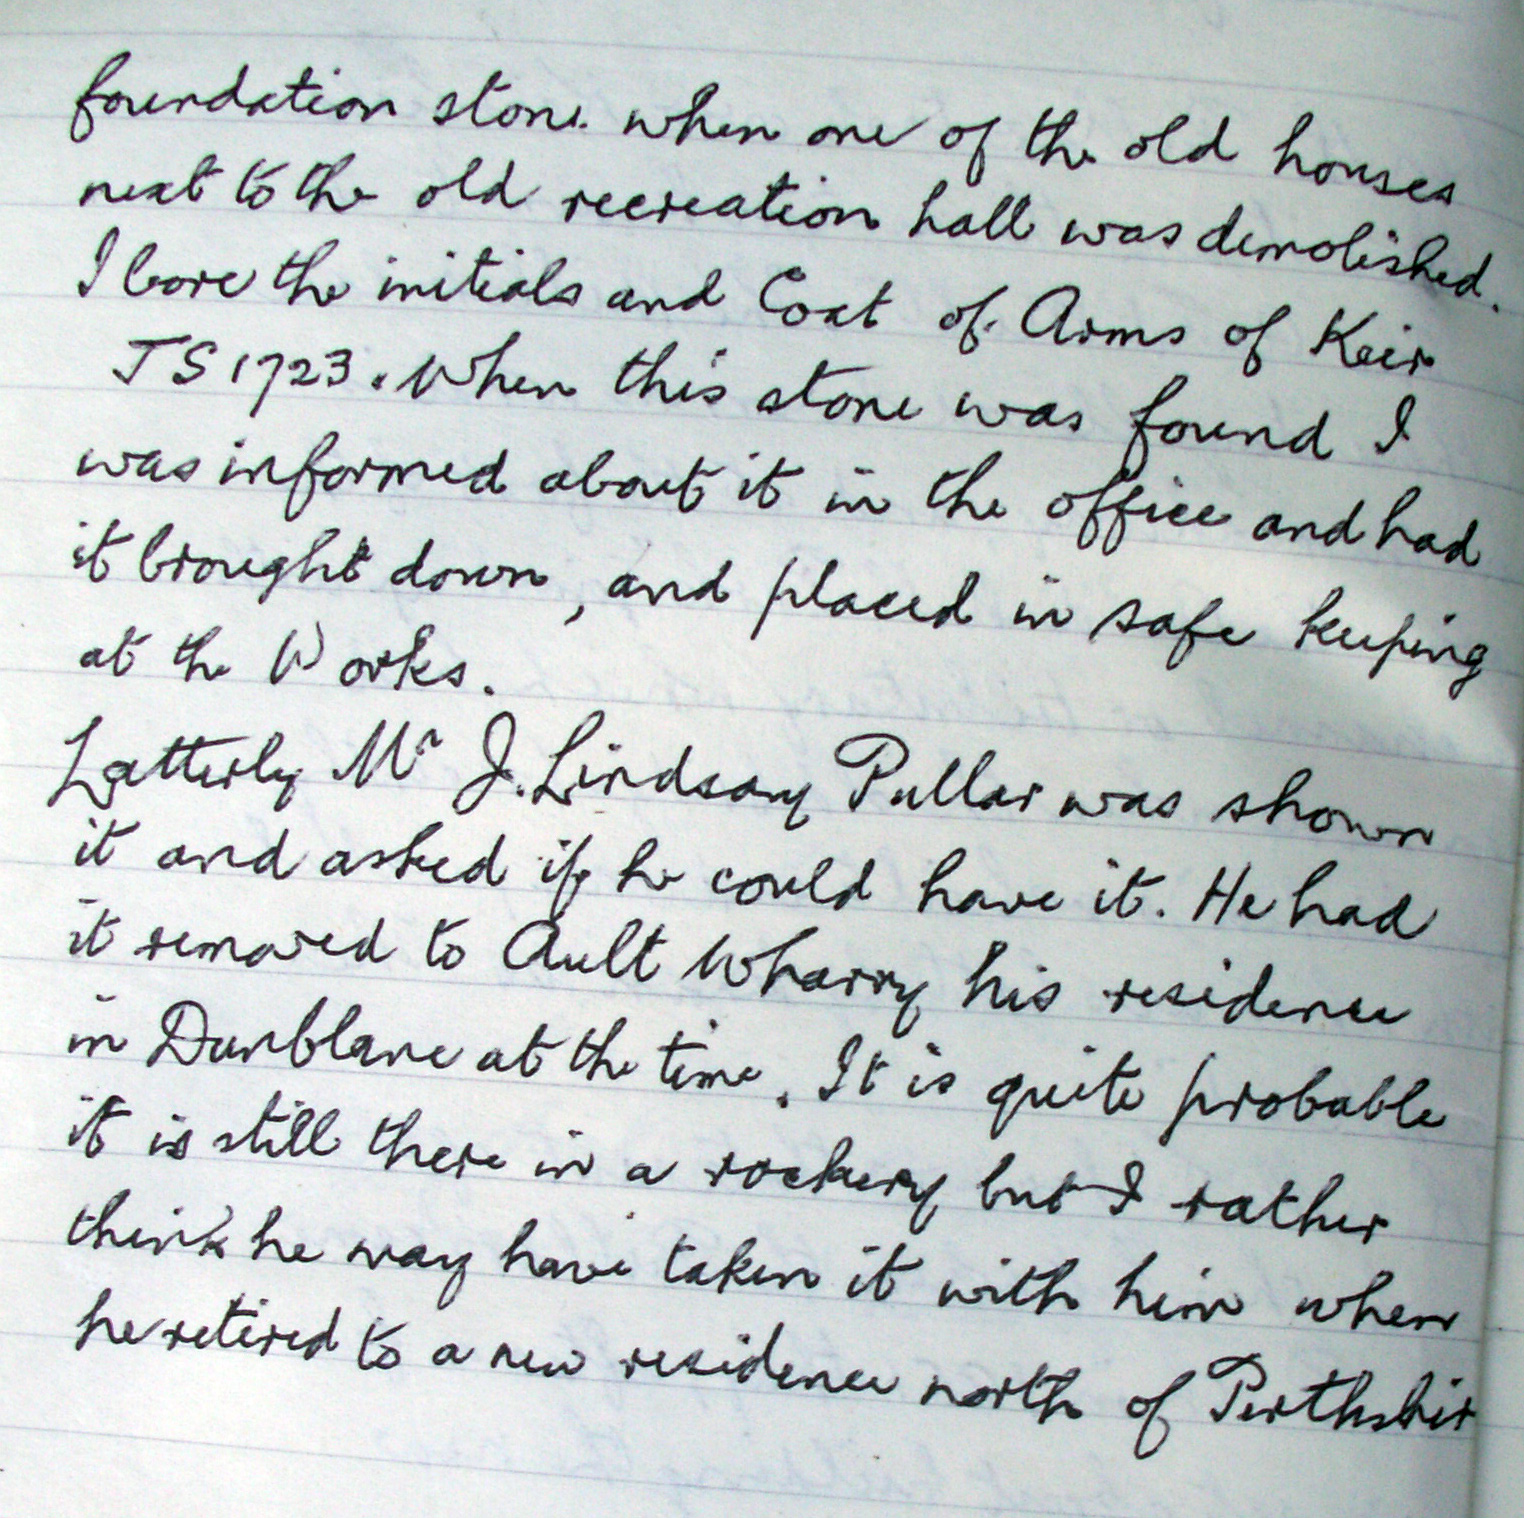 foundation stone when one of the old houses
next to the old recreation hall was demolished.
I bore the initials and Coat of Arms of Keir
JS 1723. When this stone was found I
was informed about it in the office and had
it brought down, and placed in safe keeping
at the Works.
Latterly Mr J. Lindsay Pullar was shown
it and asked if he could have it. He had
it removed to Ault Wharry his residence
in Dunblane at the time. It is quite probable
it is still there in a rockery but I rather
think he may have taken it with him when
he retired to a new residence north of Perthshir